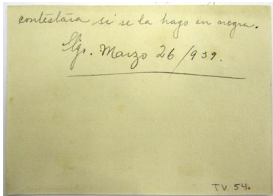 contestara si se la hago en negra.
Stgo. Marzo 26/939.
TV 54.